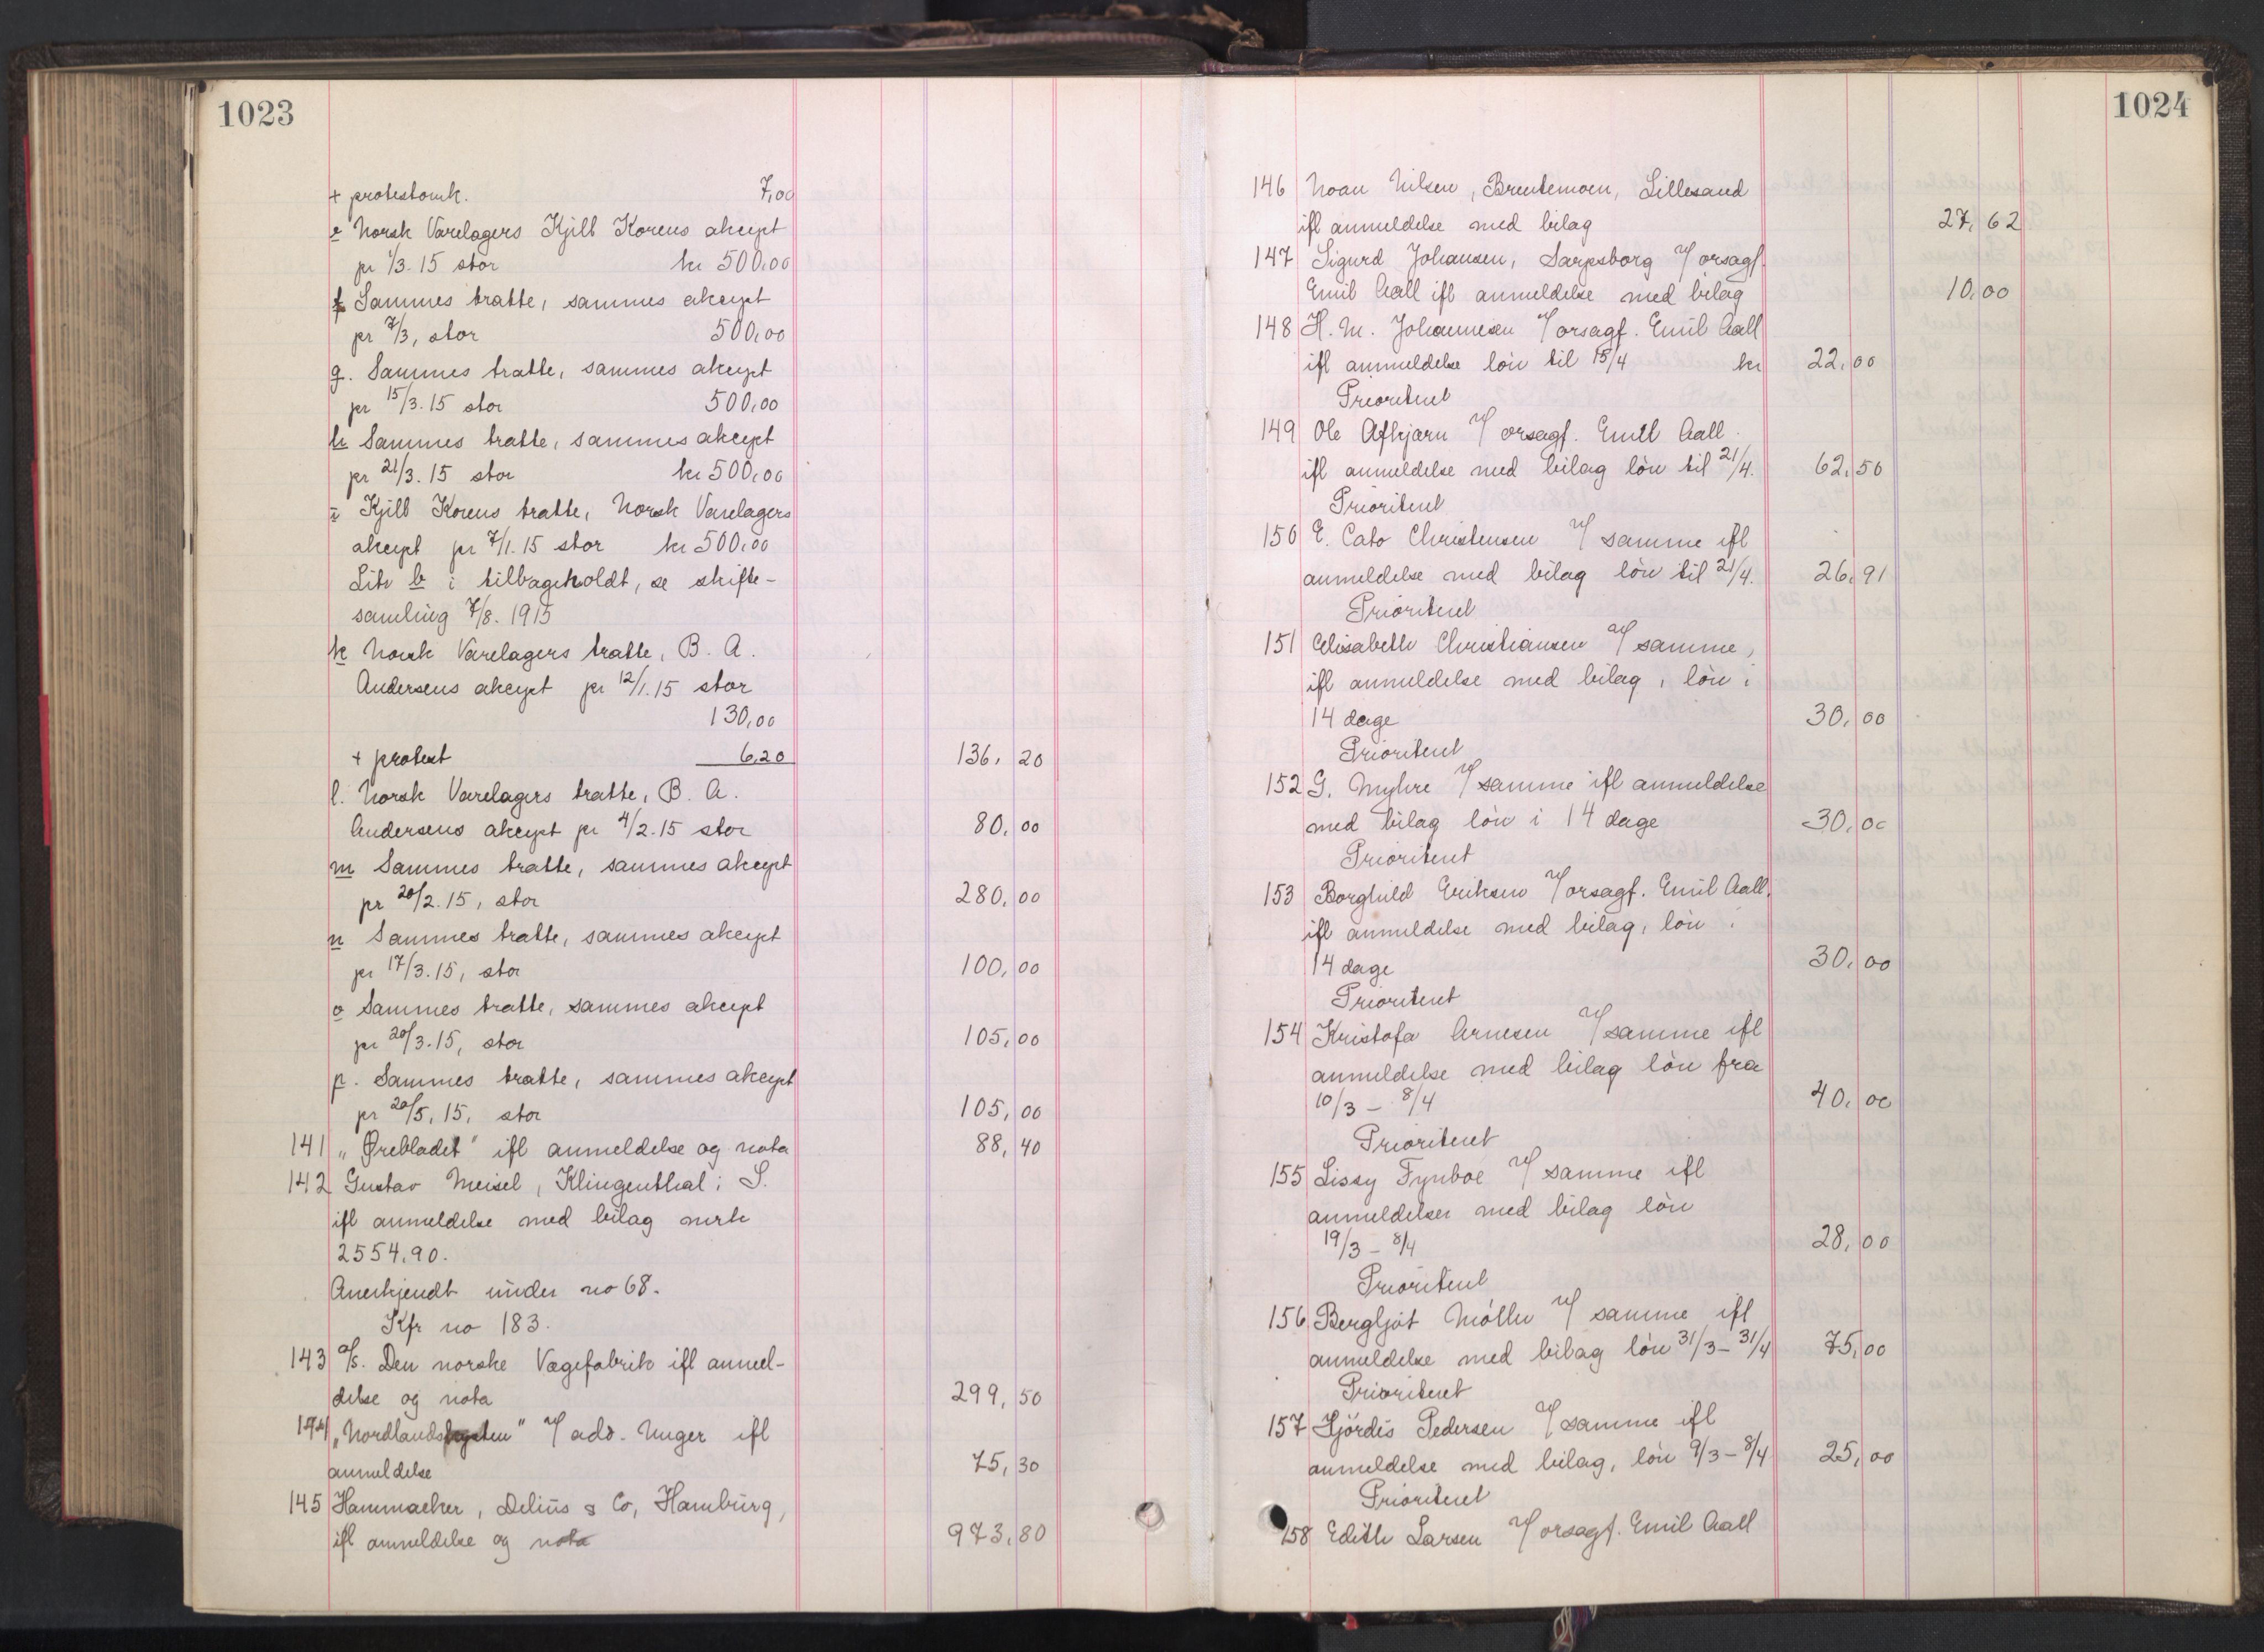 1023
+ protestomk. 7,00
e Norsk Varelagers Kjell Korens akcept
pr 1/3.15 stor kr 500,00
f Sammes tratte, sammes akcept
pr 7/3, stor 500,00
g. Sammes tratte, sammes akcept
pr 15/3.15 stor 500,00
h Sammes tratte, sammes akcept
pr 21/3.15 stor kr 500,00
i Kjell Korens tratte, Norsk Varelagers
akcept pr 7/1.15 stor kr 500,00
Litr b i tilbageholdt, se skifte-
samling 7/8. 1915
k Norsk Varelagers tratte, B. A.
Andersens akcept pr 12/1.15 stor
130,00
+ protest 6,20 136,20
l. Norsk Varelagers tratte, B. A.
Andersens akcept pr 4/2.15 stor 80,00
m Sammes tratte, sammes akcept
pr 20/2.15, stor 280,00
n Sammes tratte, sammes akcept
pr 17/3.15, stor 100,00
o Sammes tratte, sammes akcept
pr 20/3.15, stor 105,00
p. Sammes tratte, sammes akcept
pr 20/5,15, stor 105,00
141 „Ørebladet" ifl anmeldelse og nota 88,40
142 Gustav Meisel, Klingenthal i S.
ifl anmeldelse med bilag mrk
2554,90.
Anerkjendt under no 68.
Kfr no 183.
143 a/s. Den norske Vægefabrik ifl anmel-
delse og nota 299,50
144 „Nordlands " v/ adv. Unger ifl
anmeldelse 75,30
145 Hammacher, Delius & Co, Hamburg,
ifl anmeldelse og nota 973,80
1024
146 Noan Nilsen, Brentemoen, Lillesand
ifl anmeldelse med bilag 27,62
147 Sigurd Johansen, Sarpsborg v/ orsagf.
Emil Aall ifl anmeldelse med bilag 10,00
148 H. M. Johannesen v/ orsagf. Emil Aall
ifl anmeldelse løn til 15/4 kr 22,00
Prioritert
149 Ole Afkjærn v/ orsagf. Emil Aall.
ifl anmeldelse med bilag løn til 21/4. 62,50
Prioritert
150 E. Cato Christensen v/ samme ifl
anmeldelse med bilag løn til 21/4. 26,91
Prioritert
151 Elisabeth Christiansen v/ samme,
ifl anmeldelse med bilag, løn i
14 dage 30,00
Prioritert
152 G. Myhre v/ samme ifl anmeldelse
med bilag løn i 14 dage 30,00
Prioritert
153 Borghild Eriksen v/ orsagf. Emil Aall,
ifl anmeldelse med bilag, løn i
14 dage 30,00
Prioritert
154 Kristofa Arnesen v/ samme ifl
anmeldelse med bilag løn fra
10/3 - 8/4 40,00
Prioritert
155 Lissy Fynboe v/ samme ifl
anmeldelser med bilag løn
19/3 - 8/4 28,00
Prioritert
156 Bergljot Møller v/ samme ifl
anmeldelse med bilag løn 31/3 - 31/4 75,00
Prioritert
157 Hjördis Pedersen v/ samme ifl
anmeldelse med bilag, løn 9/3 - 8/4 25,00
Prioritert
158 Edith Larsen v/ orsagf. Emil Aall